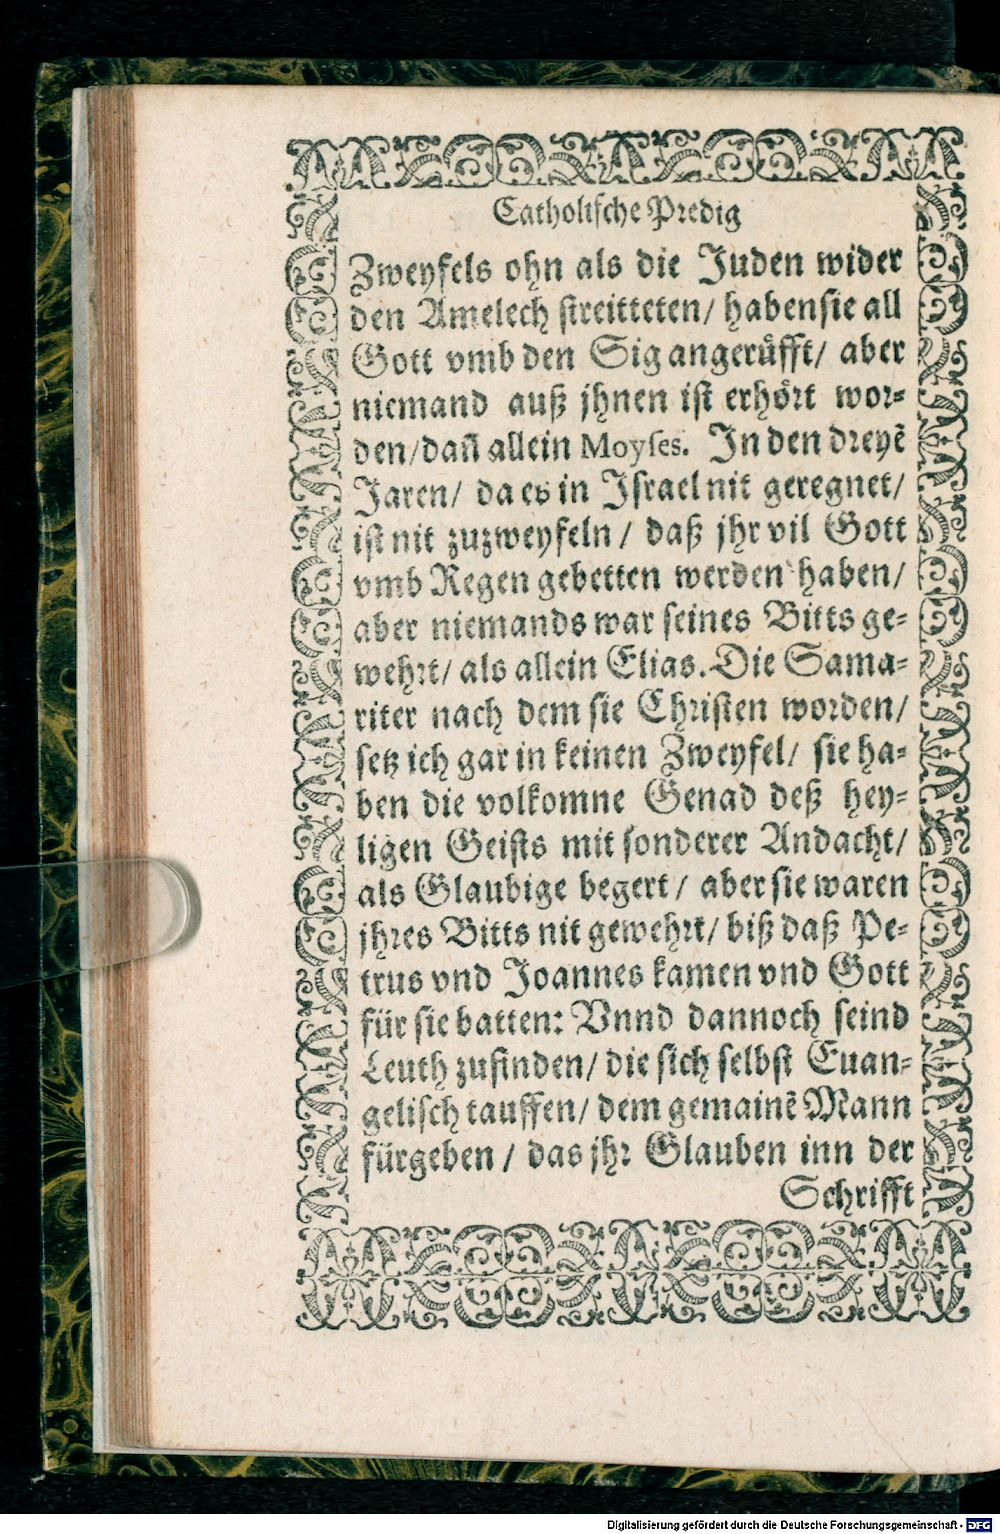 Catholische Predig
Zweyfels ohn als die Juden wider
den Amelech streitteten/ haben sie all
Gott vmb den Sig angerůfft/ aber
niemand auß jhnen ist erhoͤrt wor⸗
den/ dañ allein Moyses. In den dreyẽ
Jaren/ da es in Israel nit geregnet/
ist nit zuzweyfeln / daß jhr vil Gott
vmb Regen gebetten werden haben/
aber niemands war seines Bitts ge⸗
wehrt/ als allein Elias. Die Sama⸗
riter nach dem sie Christen worden/
setz ich gar in keinen Zweyfel/ sie ha⸗
ben die volkomne Genad deß hey⸗
ligen Geists mit sonderer Andacht/
als Glaubige begert / aber sie waren
jhres Bitts nit gewehrt/ biß daß Pe⸗
trus vnd Joannes kamen vnd Gott
für sie batten: Vnnd dannoch seind
Leuth zufinden/ die sich selbst Euan⸗
gelisch tauffen/ dem gemainẽ Mann
fürgeben / das jhr Glauben inn der
Schrifft
Digitalisierung gefördert durch die Deutsche Forschungsgemeinschaft - DFG